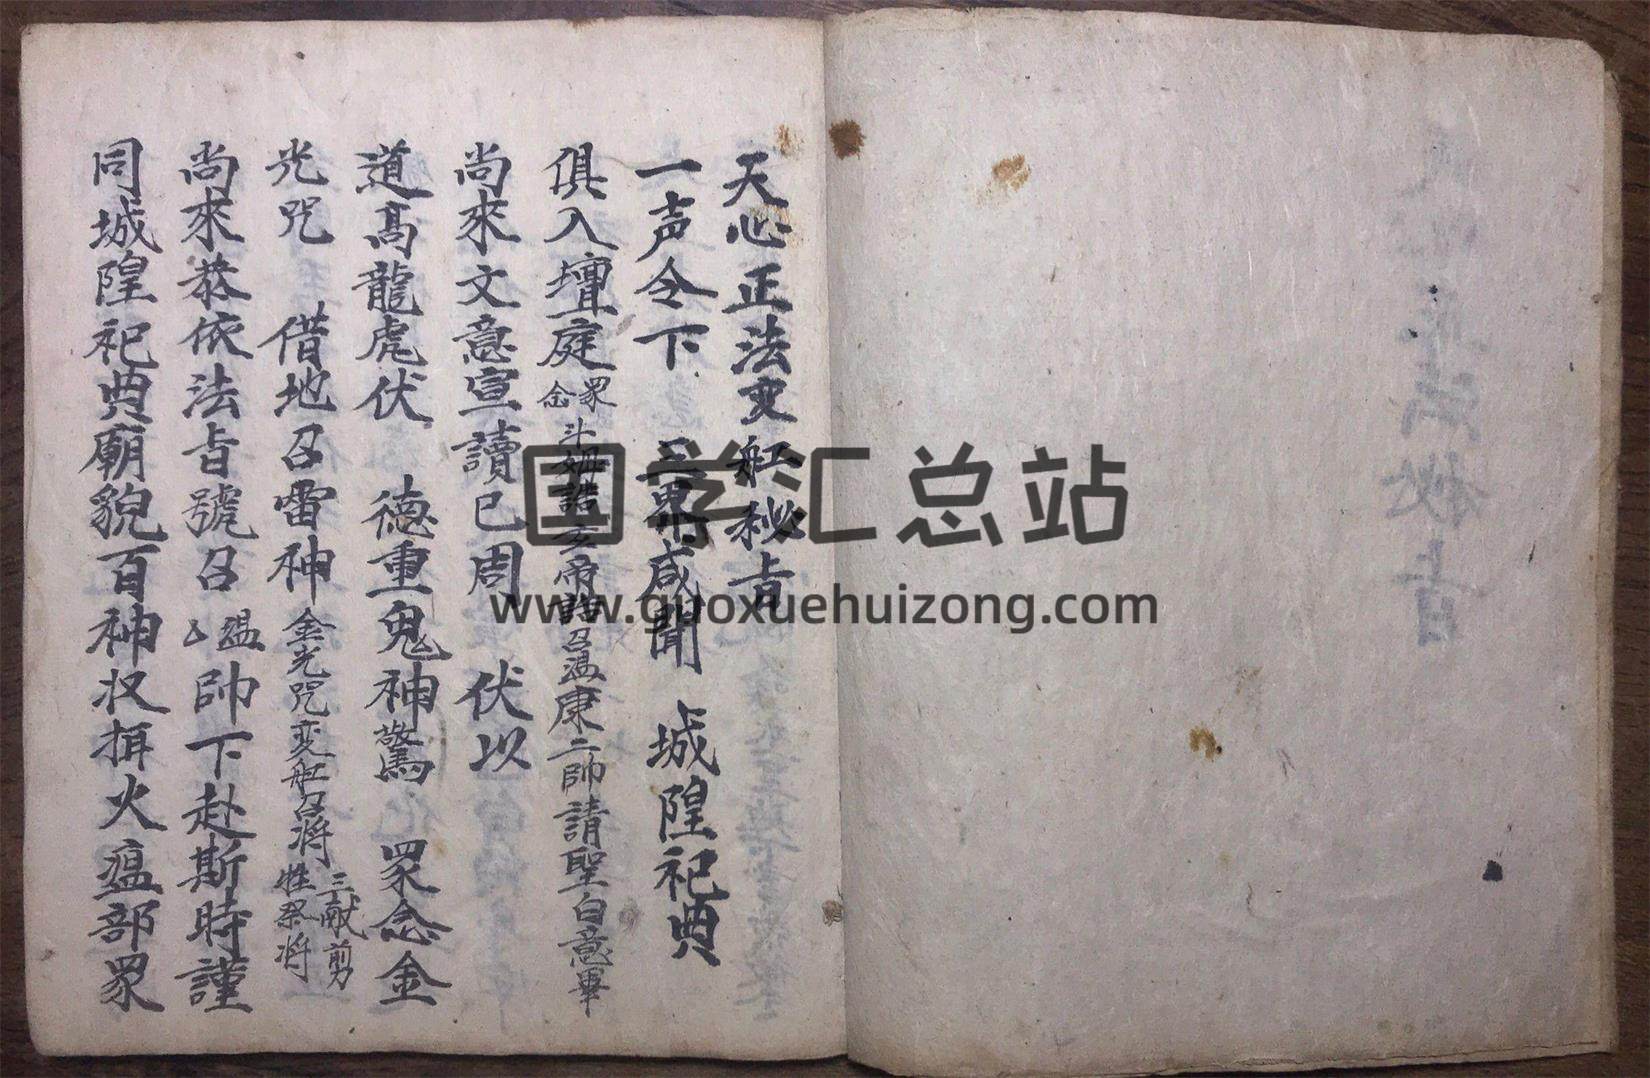 天心正法变舡秘旨
一声令下 三界咸聞 城隍祀典
俱入壇庭 眾念 斗姆誥玄帝誥召温康二帥請聖白意畢
尚來文意宣讀已周 伏以
道高龍虎伏 德重鬼神驚 眾念金
光咒 借地召雷神 金光咒変舡召将 三献剪牲祭将
尚來恭依法旨號召 温 帥下赴斯時謹
同城隍祀典廟貌百神収捐火瘟部眾
国学汇总站
www.guoxuehuizong.com